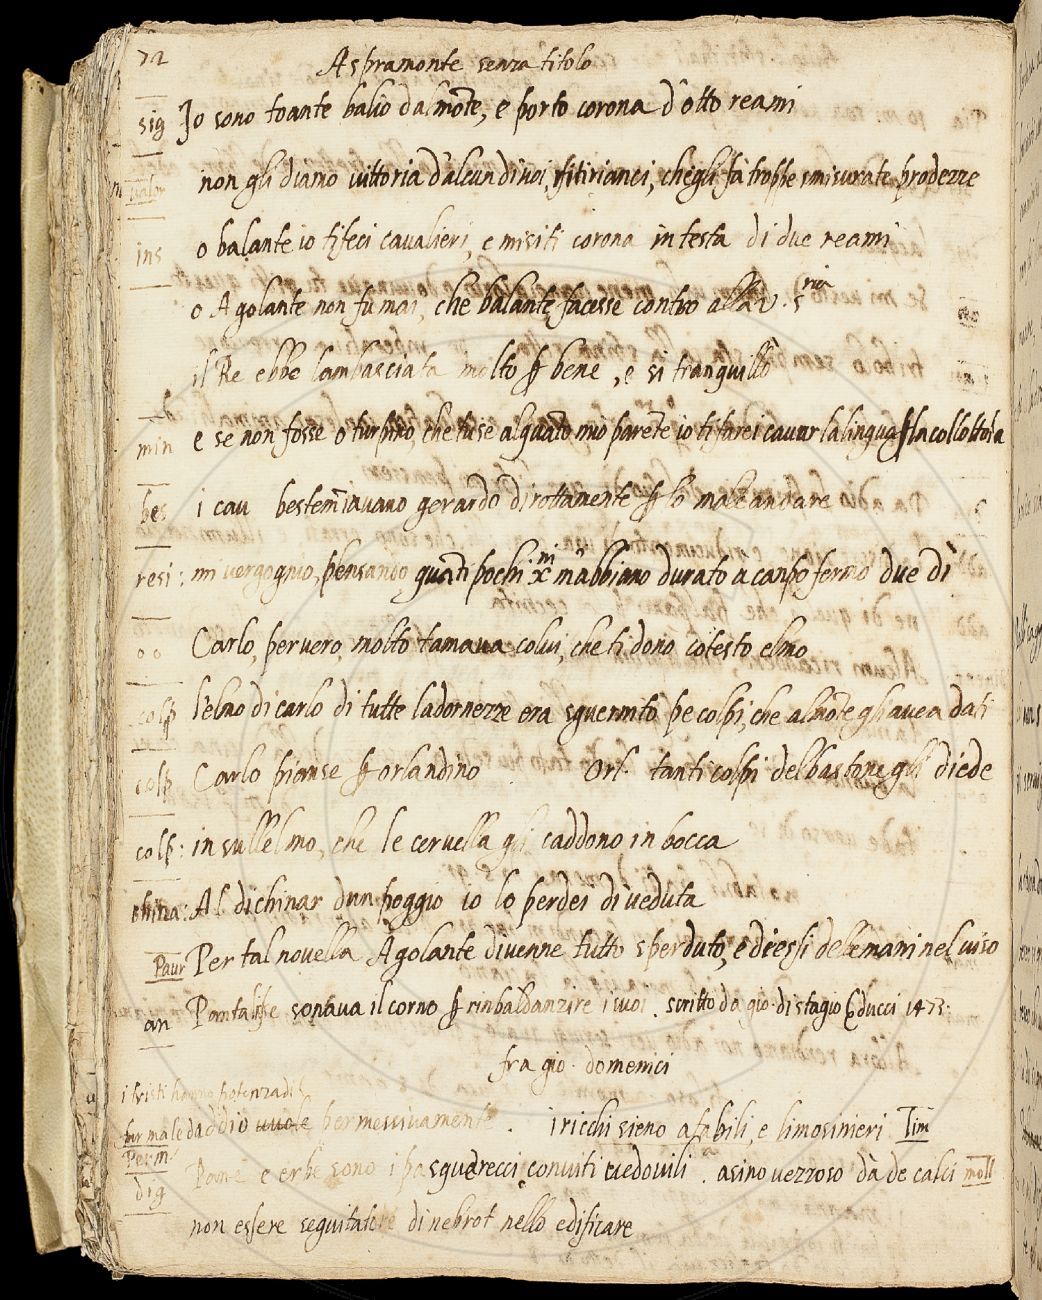 72
Aspramonte senza titolo
sig Io sono toante balio dalmõte, e porto corona d'otto reami
valor non gli diamo vittoria d'alcun di noi, ritirianci, ch'egli fa troppe smisurate prodezze
ins o balante io ti feci cavalieri, e misiti corona in testa di due reami
o Agolante non fu mai, che balante facesse contro alla v. s ria
il Re ebbe lambasciata molto ꝑ bene, e si tranquillò
min e se non fosse o turpino, che tu se alquãto mio parẽte io ti farei cavar la lingua ꝑ la collottola
bes i cav bestem̃iavano gerardo dirottamente ꝑ lo mal andare
resi: mi vergognio, pensando, quãti pochi x̃ni m'abbiano durato a canpo fermo due dì
o o Carlo, per vero, molto tamava colui, che ti dono cotesto elmo
colp lelmo di carlo di tutte ladornezze era sguernito pe colpi, che almõte gli avea dati
colp Carlo pianse ꝑ orlandino Orl. tanti colpi del bastone gli diede
colp: in sullelmo, che le cervella gli caddono in bocca
china: Al dichinar dun poggio io lo perdei di veduta
Paur Per tal novella Agolante divenne tutto sperduto, e diessi delle mani nel viso
an Pantalise sonava il corno ꝑ rinbaldanzire i suoi. scritto da gio. di stagio Cducci 1473.
fra gio. domenici
i tristi hanno potenza di
far male da ddio vuole permessivamente. i ricchi sieno afabili, e limosinieri Lim
Perm.
dig Pane e erbe sono i pasquerecci conviti vedovili. asino vezzoso dà de calci moll
non essere seguitatore di nebrot nello edificare